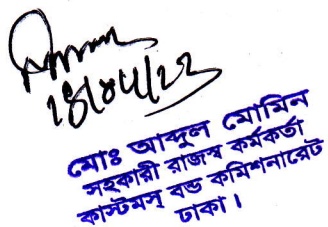 মোঃ আব্দুল মোমিন
সহকারী রাজস্ব কর্মকর্তা
কাস্টমস্ বন্ড কমিশনারেট
ঢাকা।